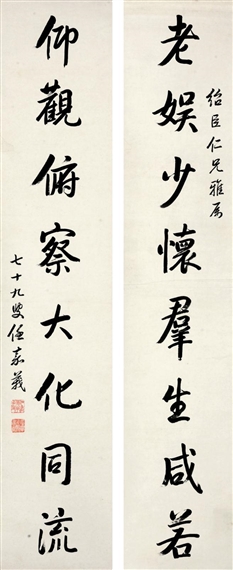 老娱少懷羣生咸若
紹臣仁兄雅屬
仰觀俯察大化同流
七十九叟任嘉義